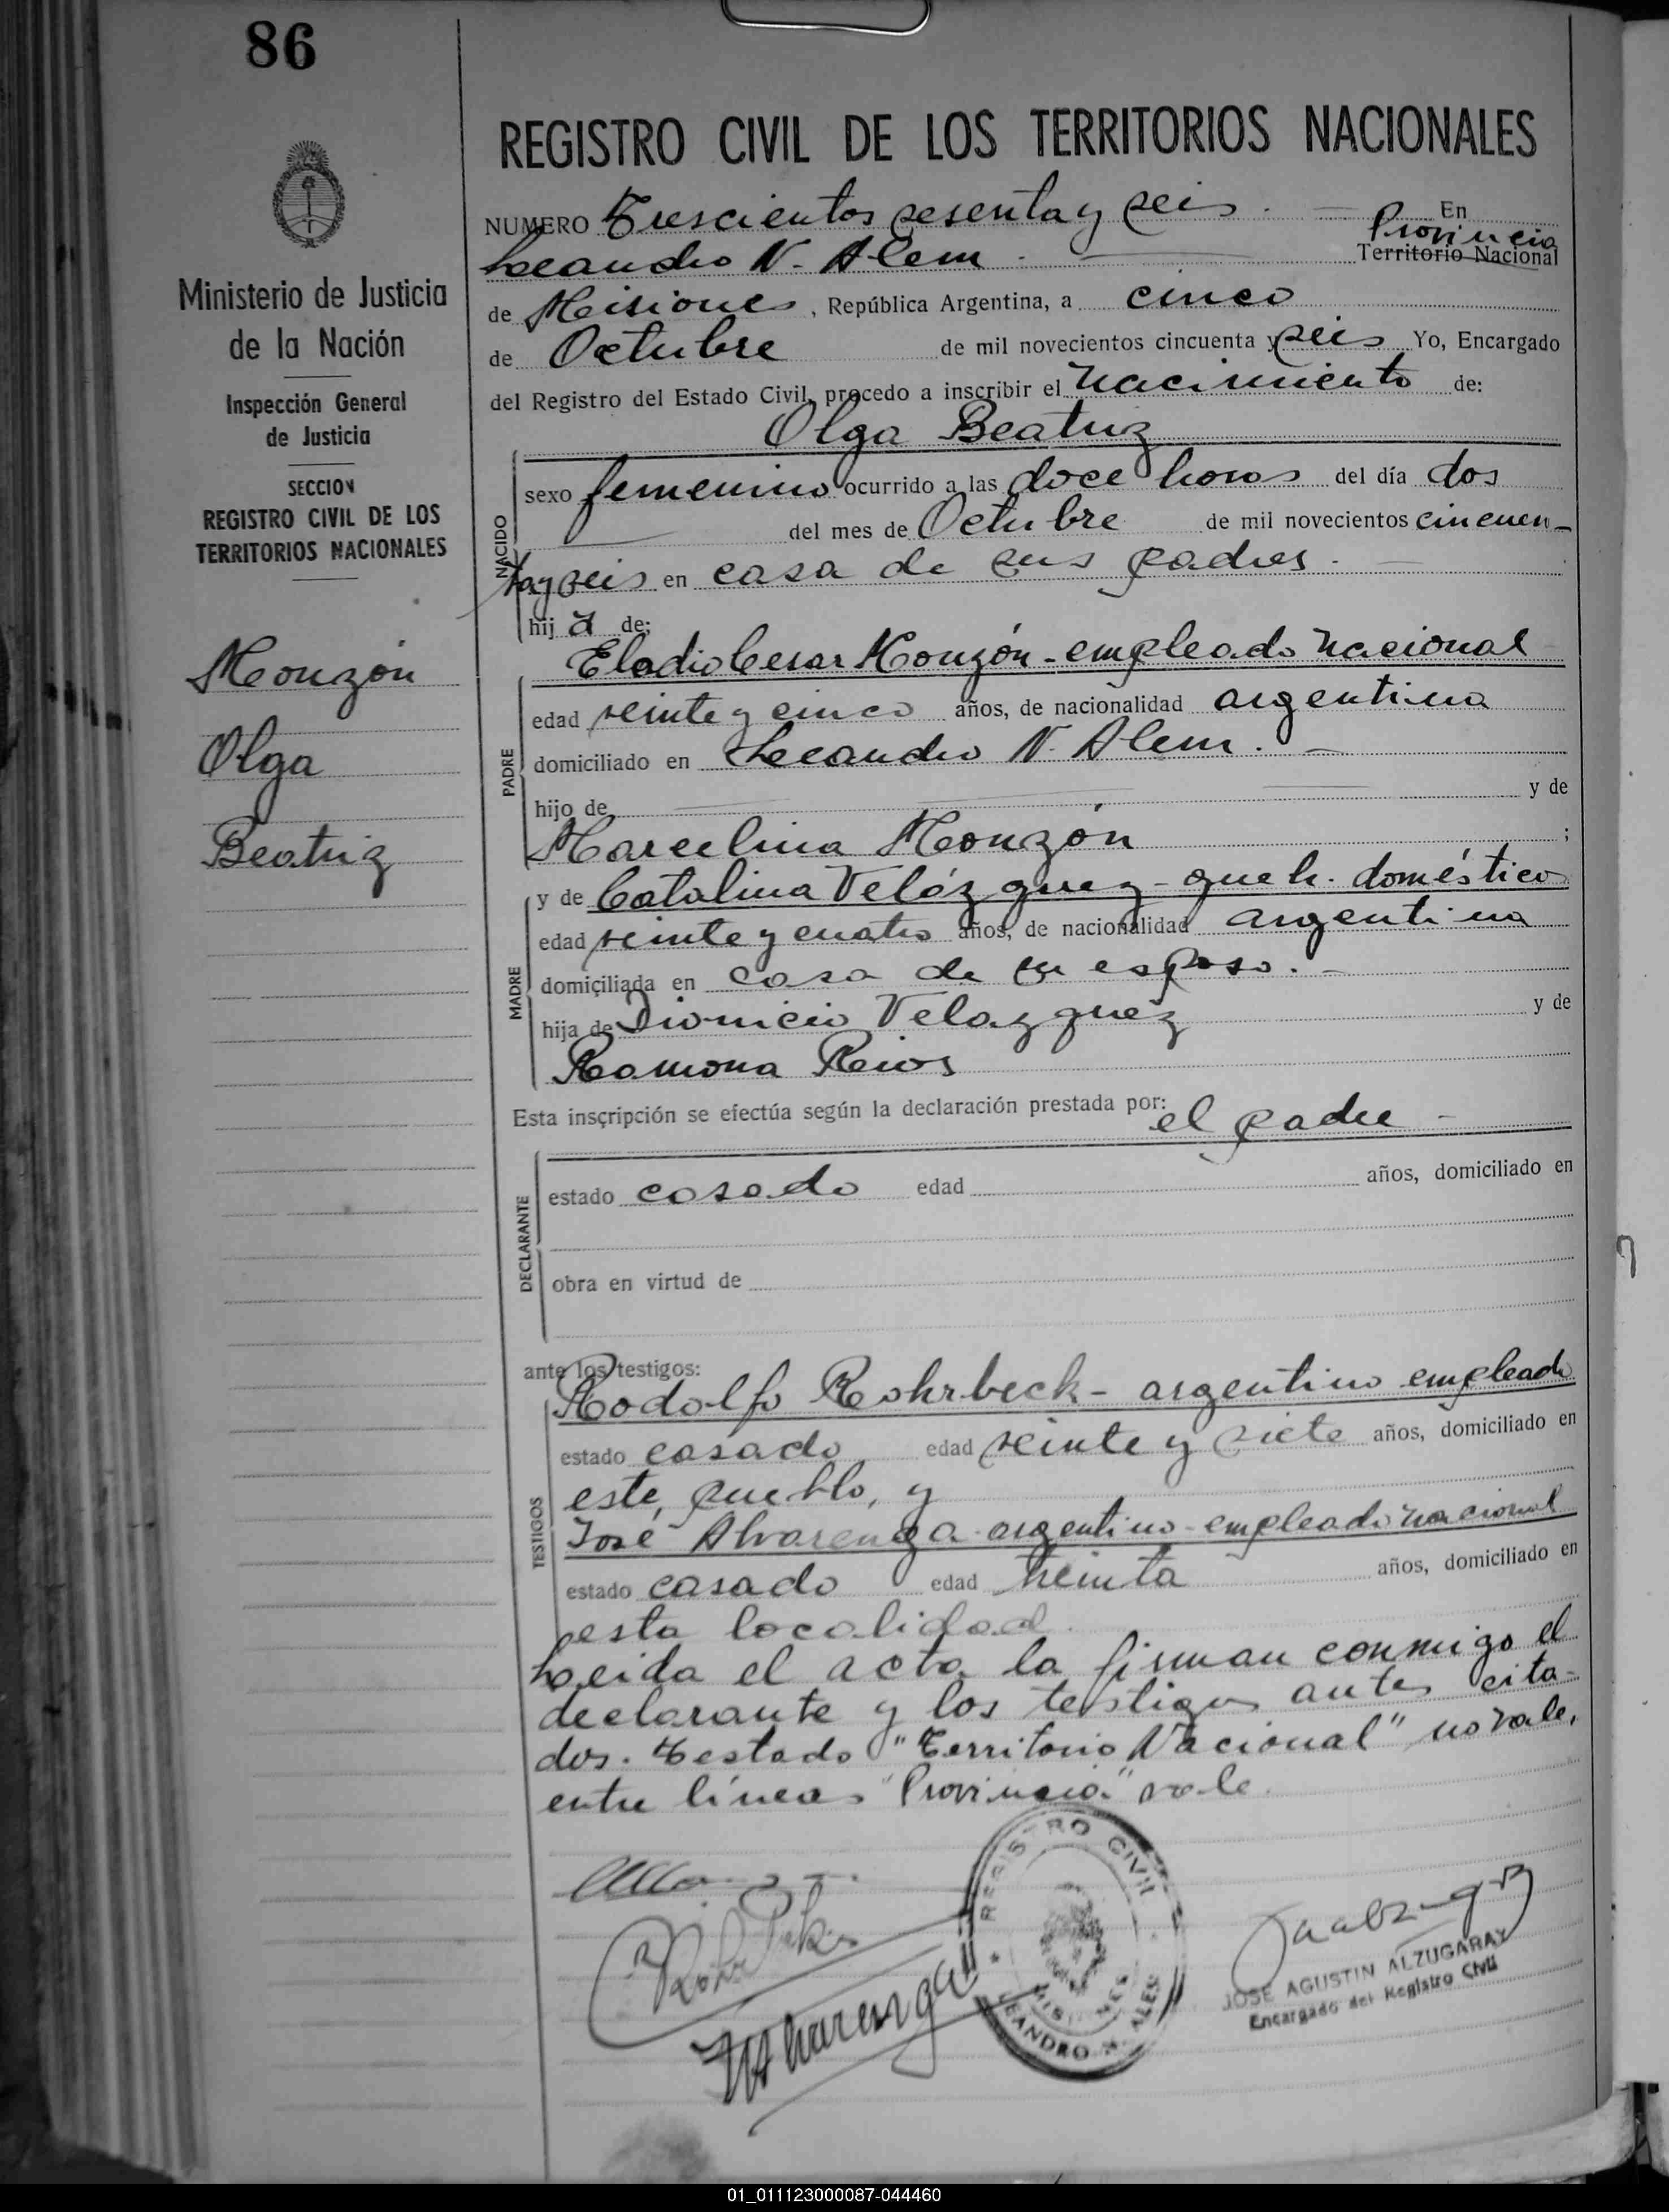 86
REGISTRO CIVIL DE LOS TERRITORIOS NACIONALES
NUMERO Trescientos sesenta y seis. — En
Leandro N. Alem. — Provincia
Territorio Nacional
de Misiones, República Argentina, a cinco
de Octubre de mil novecientos cincuenta y seis Yo, Encargado
del Registro del Estado Civil, procedo a inscribir el nacimiento de:
Olga Beatriz
NACIDO
sexo femenino ocurrido a las doce horas del día dos
— del mes de Octubre de mil novecientos cincuen-
ta y seis en casa de sus padres. —
hij a de:
Eladio Cesar Monzón - empleado nacional
PADRE
edad veinte y cinco años, de nacionalidad argentina
domiciliado en Leandro N. Alem. —
hijo de — y de
Marcelina Monzón ;
MADRE
y de Catalina Velázquez - queh. doméstico
edad veinte y cuatro años, de nacionalidad argentina
domiciliada en casa de su esposo. -
hija de Dionicio Velazquez y de
Ramona Reios
Esta inscripción se efectúa según la declaración prestada por:
el padre -
DECLARANTE
estado casado edad años, domiciliado en
obra en virtud de
ante los testigos:
Rodolfo Rohrbeck - argentino empleado
TESTIGOS
estado casado edad veinte y siete años, domiciliado en
este, pueblo, y
José Alvarenga - argentino - empleado nacional
estado casado edad treinta años, domiciliado en
esta localidad.
Leida el acta la firman conmigo el
declarante y los testigos antes cita-
dos. Testado "Territorio Nacional" no vale,
entre líneas "Provincia" vale.
REGISTRO CIVIL
MISIONES
LEANDRO N. ALEM
JOSE AGUSTIN ALZUGARAY
Encargado del Registro Civil
Ministerio de Justicia
de la Nación
Inspección General
de Justicia
SECCION
REGISTRO CIVIL DE LOS
TERRITORIOS NACIONALES
Monzón
Olga
Beatriz
01_011123000087-044460